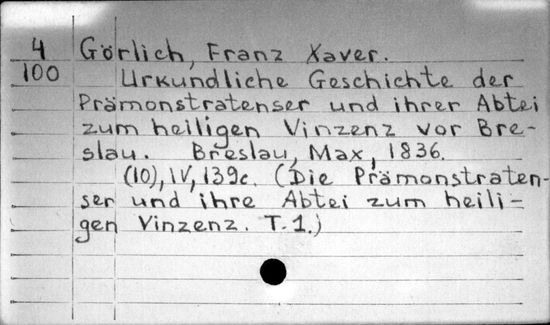 4 Görlich, Franz Xaver.
100 Urkundliche Geschichte der
Prämonstratenser und ihrer Abtei
zum heiligen Vinzenz vor Bre-
slau. Breslau, Max, 1836.
(10), IV, 139c. (Die Prämonstraten-
ser und ihre Abtei zum heili-
gen Vinzenz. T.1.)